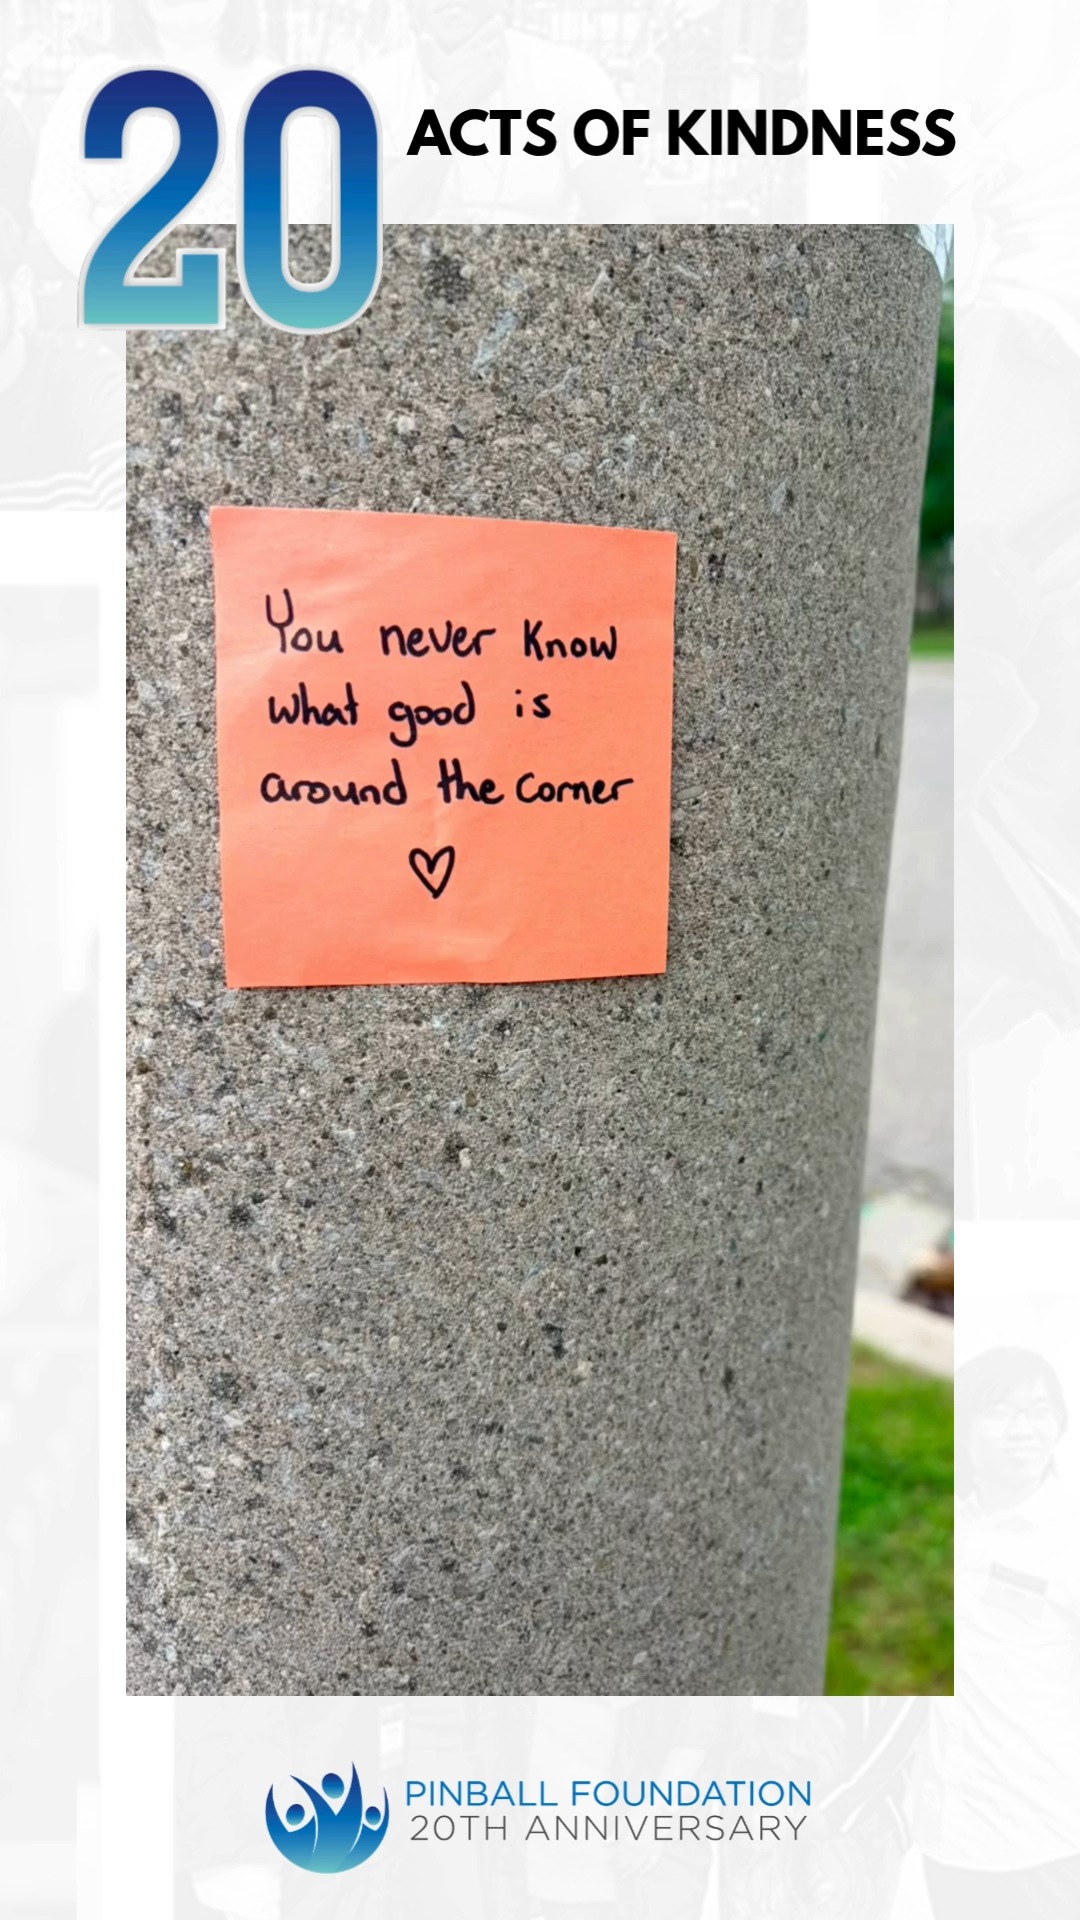 20 ACTS OF KINDNESS
You never know
what good is
around the corner
PINBALL FOUNDATION
20TH ANNIVERSARY